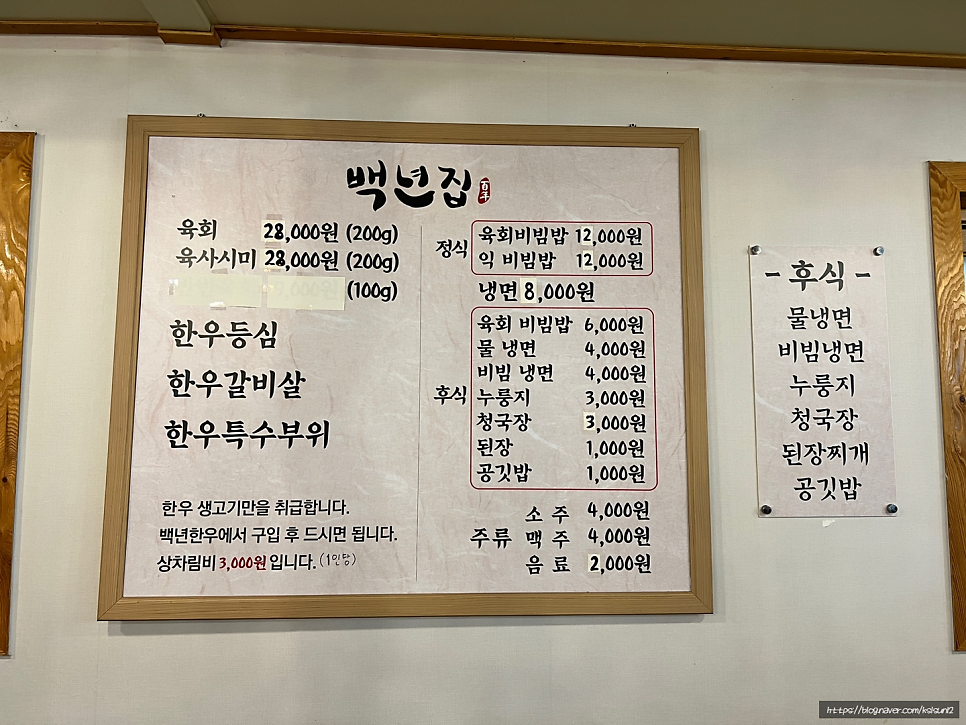 백년집
육회 28,000원 (200g)
육사시미 28,000원 (200g)
(100g)
한우등심
한우갈비살
한우특수부위
한우 생고기만을 취급합니다.
백년한우에서 구입 후 드시면 됩니다.
상차림비 3,000원 입니다. (1인당)
정식
육회비빔밥 12,000원
익 비빔밥 12,000원
냉면 8,000원
후식
육회 비빔밥 6,000원
물 냉면 4,000원
비빔 냉면 4,000원
누룽지 3,000원
청국장 3,000원
된장 1,000원
공깃밥 1,000원
주류
소 주 4,000원
맥 주 4,000원
음 료 2,000원
- 후식 -
물냉면
비빔냉면
누룽지
청국장
된장찌개
공깃밥
https://blog.naver.com/kslsun12